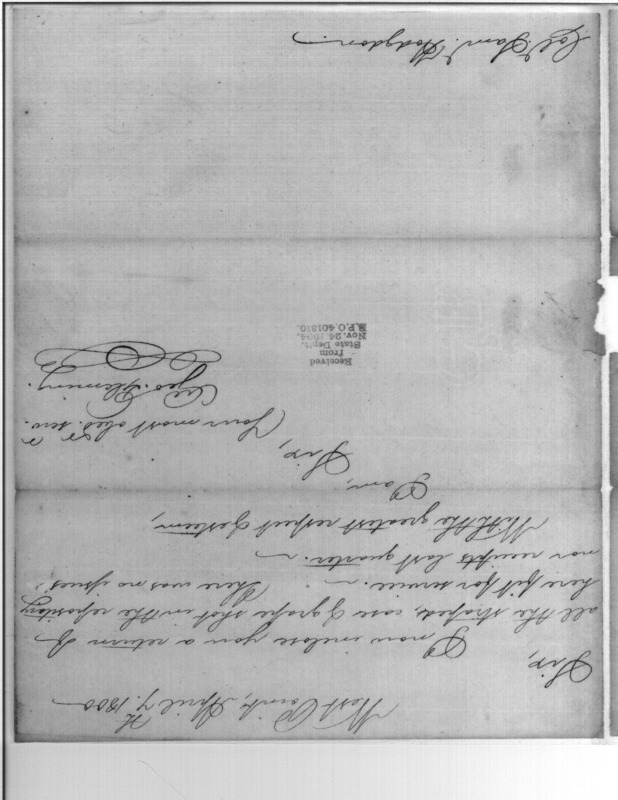 West Point, April 7th. 1800
Sir,
I now inclose you a return of
all the straped, case & grape shot in the repository
here fit for service. There was no issues,
nor receipts last quarter.
With the greatest respect & esteem,
I am,
Sir,
Your most obed. serv.
Geo. Fleming.
Received
from
State Dept.
Nov. 26, 1904.
M.P.O. 401810.
Colo. Saml. Hodgdon.